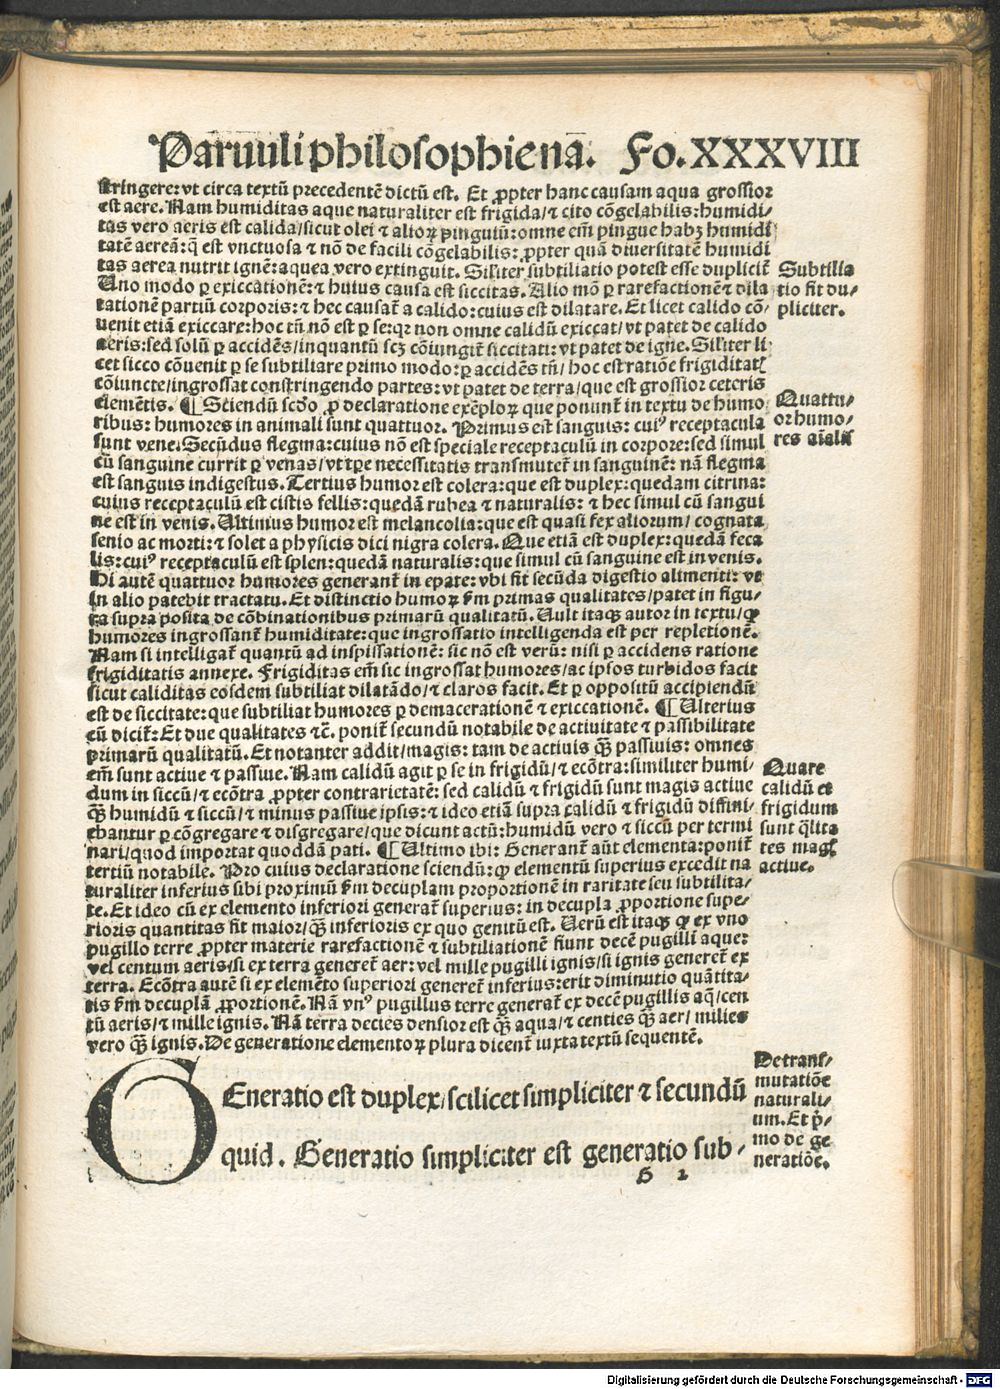 Paruuli philosophie nã. Fo. XXXVIII
stringere: vt circa textũ precedentẽ dictũ est. Et ꝓpter hanc causam aqua grossior
est aere. Nam humiditas aque naturaliter est frigida/ ⁊ cito cõgelabilis: humidi⸗
tas vero aeris est calida/ sicut olei ⁊ alioꝝ pinguiũ: omne em̃ pingue habꝫ humidi
tatẽ aereã: q̃ est vnctuosa ⁊ nõ de facili cõgelabilis: ꝓpter quã diuersitatẽ humidi
tas aerea nutrit ignẽ: aquea vero extinguit. Silĩter subtiliatio potest esse duplicit̃
Uno modo ꝑ exiccationẽ: ⁊ huius causa est siccitas. Alio mõ ꝑ rarefactionẽ ⁊ dila
tationẽ partiũ corporis: ⁊ hec causat̃ a calido: cuius est dilatare. Et licet calido cõ⸗
uenit etiã exiccare: hoc tñ nõ est ꝑ se: qꝛ non omne calidũ exiccat/ vt patet de calido
aeris: sed solũ ꝑ accidẽs/ inquantũ scꝫ cõiungit̃ siccitati: vt patet de igne. Silĩter li
cet sicco cõuenit ꝑ se subtiliare primo modo: ꝑ accidẽs tñ/ hoc est ratiõe frigiditatꝭ
cõiuncte/ ingrossat constringendo partes: vt patet de terra/ que est grossior ceteris
elemẽtis. ¶ Sciendũ scdõ ꝓ declaratione exẽploꝝ que ponunt̃ in textu de humo
ribus: humores in animali sunt quattuor. Primus est sanguis: cuiꝰ receptacula
sunt vene. Secũdus flegma: cuius nõ est speciale receptaculũ in corpore: sed simul
cũ sanguine currit ꝑ venas/ vt tꝑe necessitatis transmutet̃ in sanguinẽ: nã flegma
est sanguis indigestus. Tertius humor est colera: que est duplex: quedam citrina:
cuius receptaculũ est cistis fellis: quedã rubea ⁊ naturalis: ⁊ hec simul cũ sangui
ne est in venis. Ultimus humor est melancolia: que est quasi fex aliorum/ cognata
senio ac morti: ⁊ solet a physicis dici nigra colera. Que etiã est duplex: quedã feca
lis: cuiꝰ receptaculũ est splen: quedã naturalis: que simul cũ sanguine est in venis.
Hi autẽ quattuor humores generant̃ in epate: vbi fit secũda digestio alimenti: vt
in alio patebit tractatu. Et distinctio humoꝝ ẜm primas qualitates/ patet in figu⸗
ra supra posita de cõbinationibus primarũ qualitatũ. Uult itaqꝫ autor in textu/ ꝙ
humores ingrossant̃ humiditate: que ingrossatio intelligenda est per repletionẽ.
Nam si intelligat̃ quantũ ad inspissationẽ: sic nõ est verũ: nisi ꝑ accidens ratione
frigiditatis annexe. Frigiditas em̃ sic ingrossat humores/ ac ipsos turbidos facit
sicut caliditas eosdem subtiliat dilatãdo/ ⁊ claros facit. Et ꝑ oppositũ accipiendũ
est de siccitate: que subtiliat humores ꝑ demacerationẽ ⁊ exiccationẽ. ¶ Ulterius
cũ dicit̃: Et due qualitates ⁊c̃. ponit̃ secundũ notabile de actiuitate ⁊ passibilitate
primarũ qualitatũ. Et notanter addit/ magis: tam de actiuis qꝫ̃ passiuis: omnes
em̃ sunt actiue ⁊ passiue. Nam calidũ agit ꝑ se in frigidũ/ ⁊ ecõtra: similiter humi⸗
dum in siccũ/ ⁊ ecõtra ꝓpter contrarietatẽ: sed calidũ ⁊ frigidũ sunt magis actiue
qꝫ̃ humidũ ⁊ siccũ/ ⁊ minus passiue ipsis: ⁊ ideo etiã supra calidũ ⁊ frigidũ diffini⸗
ebantur ꝑ cõgregare ⁊ disgregare/ que dicunt actũ: humidũ vero ⁊ siccũ per termi
nari/ quod importat quoddã pati. ¶ Ultimo ibi: Generant̃ aũt elementa: ponit̃
tertiũ notabile. Pro cuius declaratione sciendũ: ꝙ elementũ superius excedit na
turaliter inferius sibi proximũ ẜm decuplam proportionẽ in raritate seu subtilita⸗
te. Et ideo cũ ex elemento inferiori generat̃ superius: in decupla ꝓportione supe⸗
rioris quantitas fit maior/ qꝫ̃ inferioris ex quo genitũ est. Uerũ est itaqꝫ ꝙ ex vno
pugillo terre ꝓpter materie rarefactionẽ ⁊ subtiliationẽ fiunt decẽ pugilli aque:
vel centum aeris/ si ex terra generet̃ aer: vel mille pugilli ignis/ si ignis generet̃ ex
terra. Ecõtra autẽ si ex elemẽto superiori generet̃ inferius: erit diminutio quãtita⸗
tis ẜm decuplã ꝓportionẽ. Nã vnꝰ pugillus terre generat̃ ex decẽ pugillis aq̃/ cen
tũ aeris/ ⁊ mille ignis. Nã terra decies densior est qꝫ̃ aqua/ ⁊ centies qꝫ̃ aer/ milies
vero qꝫ̃ ignis. De generatione elementoꝝ plura dicent̃ iuxta textũ sequentẽ.
GEneratio est duplex/ scilicet simpliciter ⁊ secundũ
quid. Generatio simpliciter est generatio sub⸗
G 2
Subtilia
tio fit du⸗
pliciter.
Quattu⸗
or humo⸗
res aĩalis
Quare
calidũ et
frigidum
sunt q̃lita
tes magꝭ
actiue.
De trans⸗
mutatiõe
naturali⸗
um. Et p̃⸗
mo de ge
neratiõe.
Digitalisierung gefördert durch die Deutsche Forschungsgemeinschaft - DFG